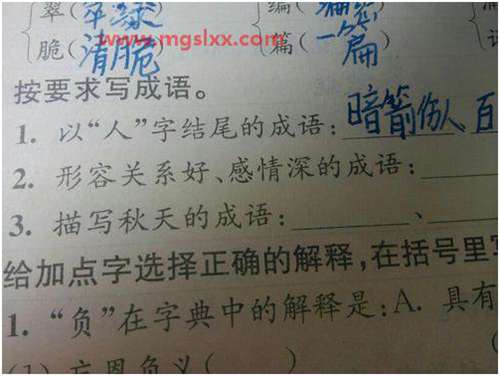 翠(翠绿 编(
脆(清脆) 篇(一篇)
www.mgslxx.com
按要求写成语。
1. 以“人”字结尾的成语:暗箭伤人 百
2. 形容关系好、感情深的成语:
3. 描写秋天的成语: 、
给加点字选择正确的解释,在括号里
1. “负”在字典中的解释是:A. 具有
(1) 忘恩负义( )